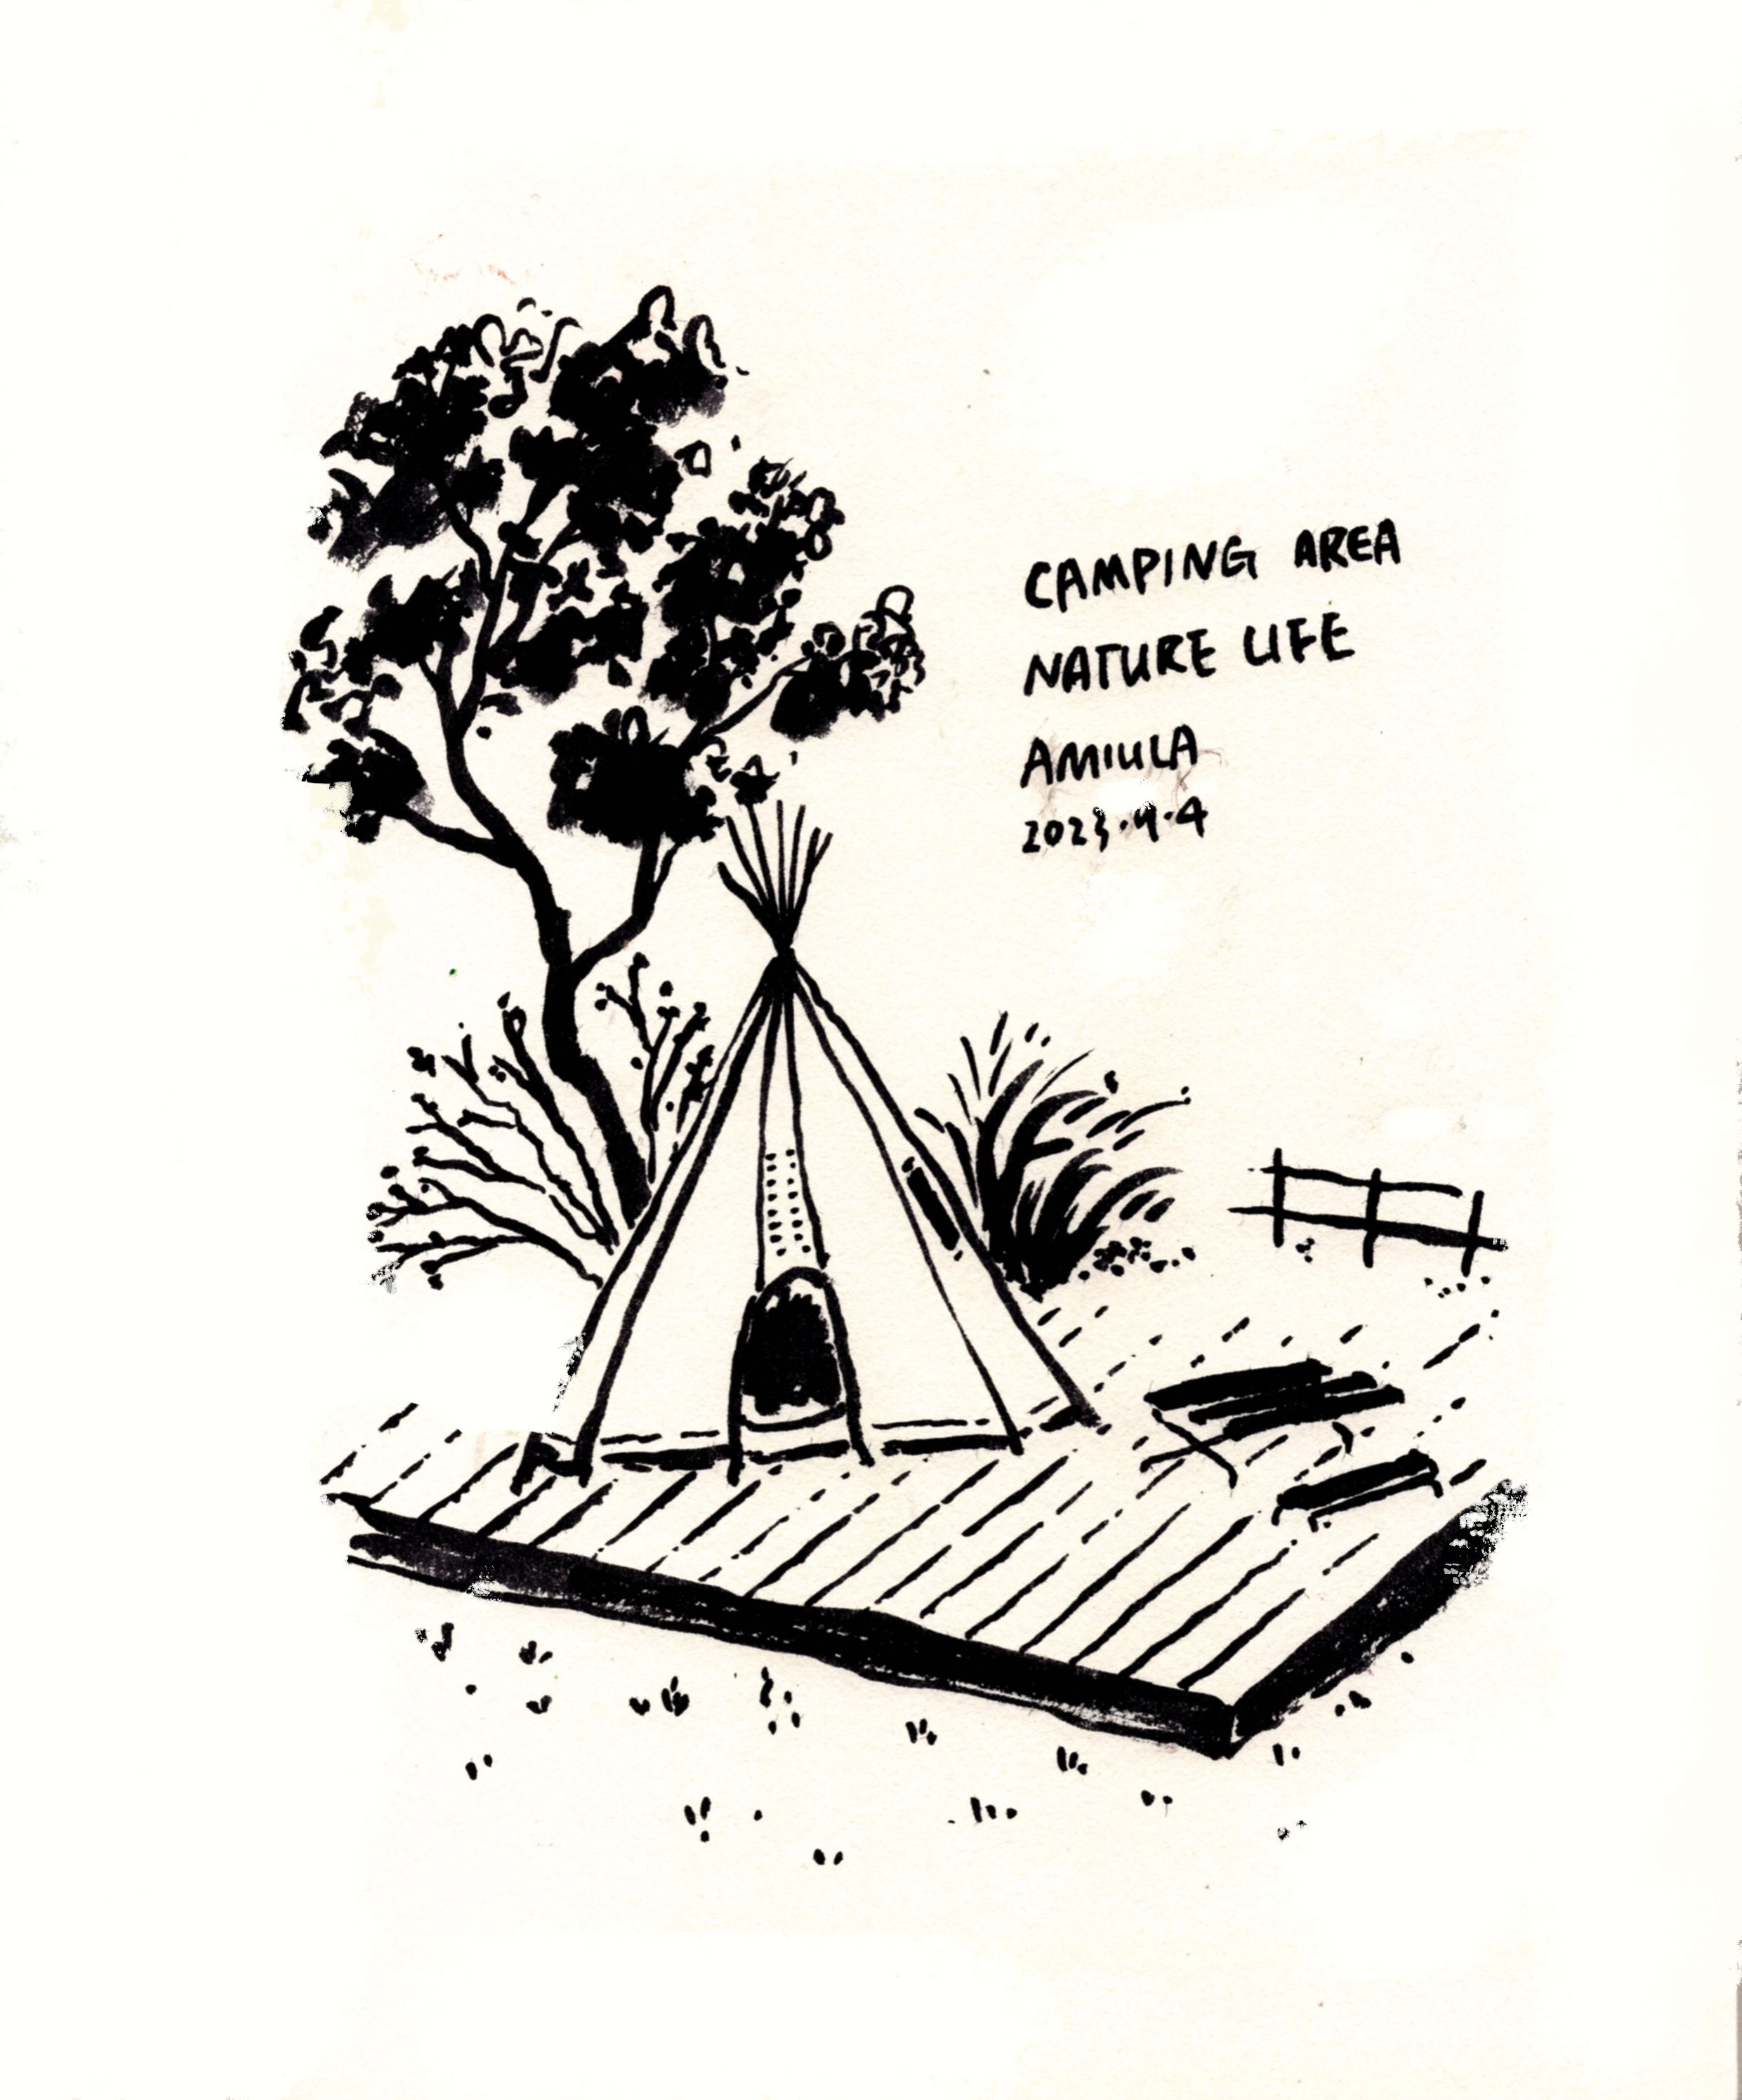 CAMPING AREA
NATURE LIFE
AMIULA
2023.9.4